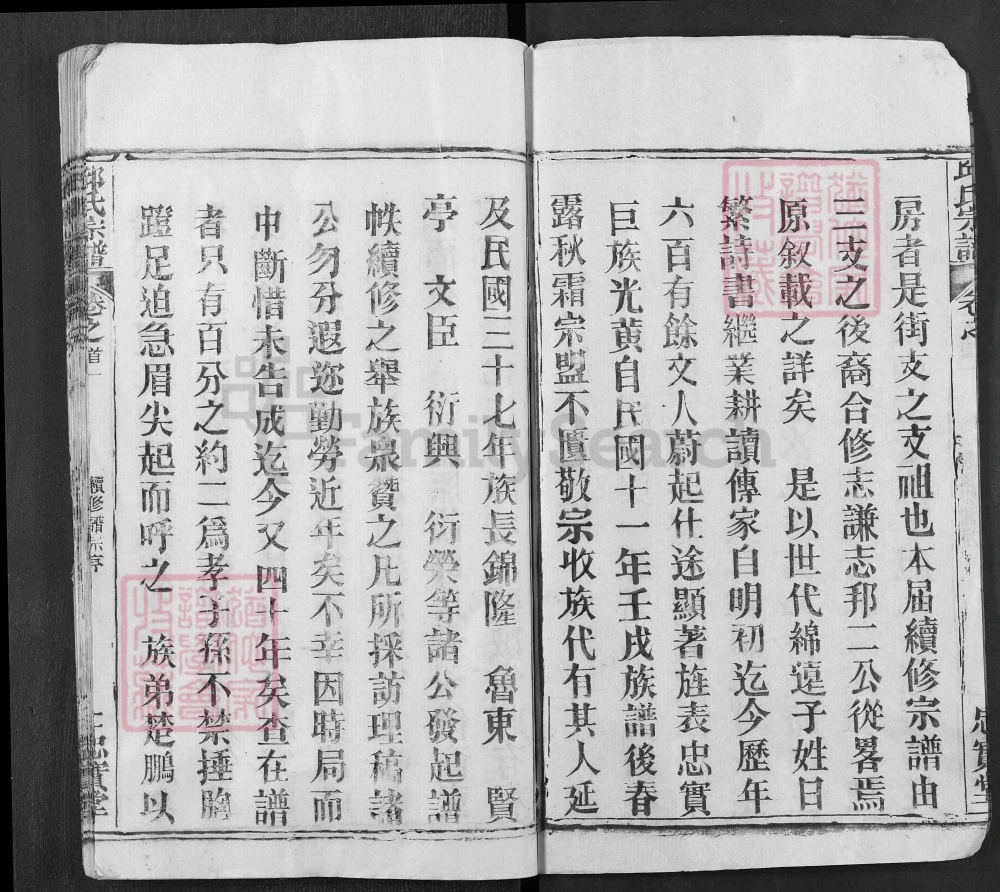 房者是街支之支祖也本届續修宗譜由
三支之後裔合修志謙志邦二公從畧焉
原敘載之詳矣　是以世代綿遠子姓日
繁詩書繼業耕讀傳家自明初迄今歷年
六百有餘文人蔚起仕途顯著旌表忠實
巨族光黄自民國十一年壬戌族譜後春
露秋霜宗盟不匱敬宗收族代有其人延
及民國三十七年族長錦隆　魯東　賢
亭　文臣　衍興　衍榮等諸公發起譜
帙續修之舉族衆贊之凡所採訪理稿諸
公勿分遐迩勤勞近年矣不幸因時局而
中斷惜未告成迄今又四十年矣查在譜
者只有百分之約二爲孝子孫不禁捶胸
蹬足迫急眉尖起而呼之　族弟楚鵬以
邱氏宗譜
卷之首
續修譜序
忠實堂
邱氏宗譜
忠實堂
FamilySearch